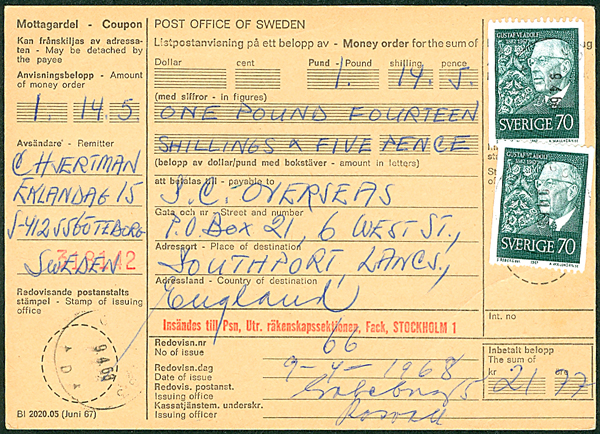 Mottagardel - Coupon
Kan frånskiljas av adressa-
ten - May be detached by
the payee
Anvisningsbelopp - Amount
of money order
1. 14. 5
Avsändare - Remitter
C HJERTMAN
EKLANDAG 15
S-41255 GÖTEBORG
SWEDEN
Redovisande postanstalts
stämpel - Stamp of issuing
office
BI 2020.05 (Juni 67)
POST OFFICE OF SWEDEN
Listpostanvisning på ett belopp av - Money order for the sum of
Dollar cent Pund - Pound shilling pence
1. 14. 5.
(med siffror - in figures)
ONE POUND FOURTEEN
SHILLINGS & FIVE PENCE
(belopp av dollar/pund med bokstäver - amount in letters)
att betalas till - payable to
J.C. OVERSEAS
Gata och nr - Street and number
P.O. BOX 21, 6 WEST ST.,
Adressort - Place of destination
SOUTHPORT, LANCS,
Adressland - Country of destination
England
Insändes till Psn, Utr. räkenskapssektionen, Fack, STOCKHOLM 1
Redovisn.nr
No of issue
66
Redovisn.dag
Date of issue
9-4-1968
Redovis. postanst.
Issuing office
Göteborg 5
Kassatjänstem. underskr.
Issuing officer
GUSTAF VI ADOLF
1882 1967
SVERIGE 70
GUSTAF VI ADOLF
1882 1967
SVERIGE 70
Int. no
Inbetalt belopp
The sum of
kr
21 77